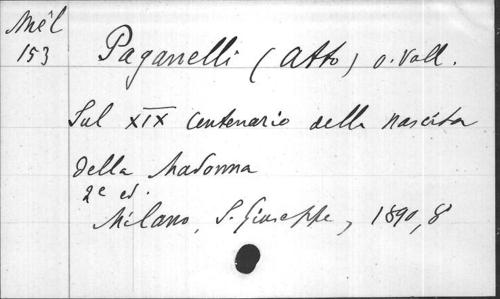 Mél
153
Paganelli (Atto) o. Vall.
Sul XIX Centenario della nascita
della Madonna
2e ed.
Milano, S. Giuseppe, 1890, 8